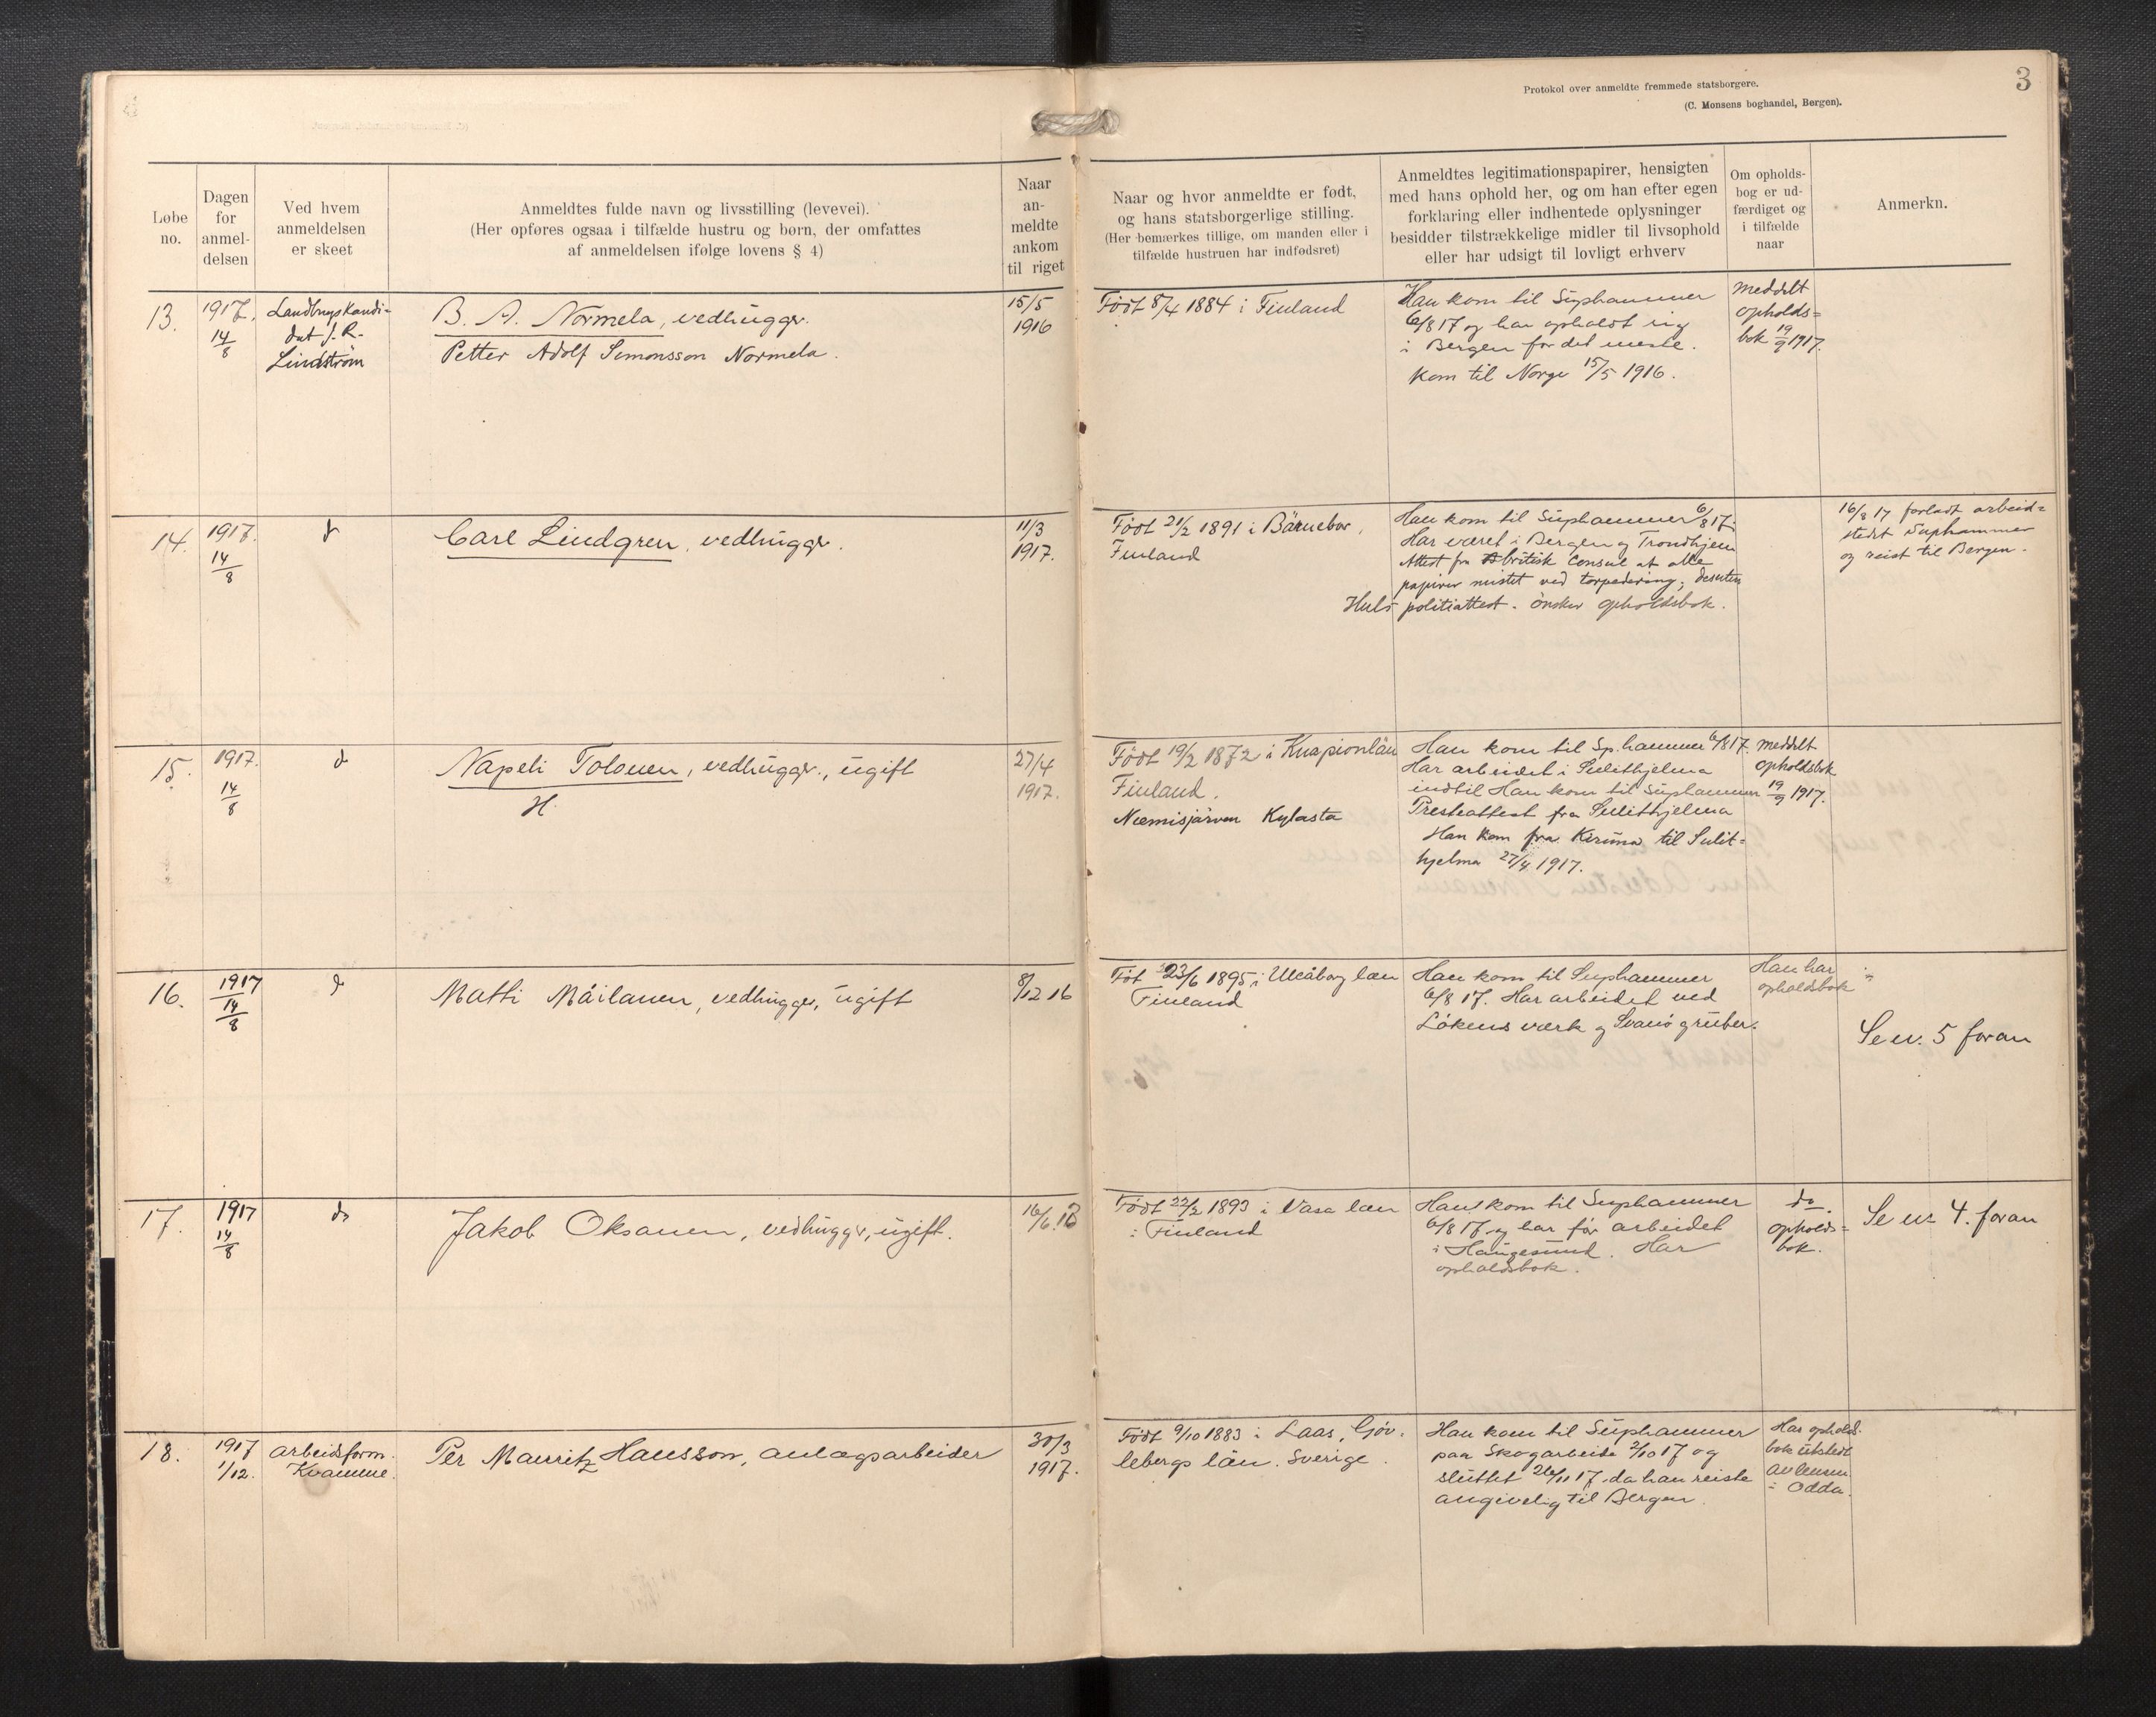 Protokol over anmeldte fremmede statsborgere.
(C. Monsens boghandel, Bergen).
3
Løbe no.
Dagen for anmel- delsen
Ved hvem anmeldelsen er skeet
Anmeldtes fulde navn og livsstilling (levevei).
(Her opføres ogsaa i tilfælde hustru og børn, der omfattes
af anmeldelsen ifølge lovens § 4)
Naar an- meldte ankom til riget
Naar og hvor anmeldte er født,
og hans statsborgerlige stilling.
(Her bemærkes tillige, om manden eller i
tilfælde hustruen har indfødsret)
Anmeldtes legitimationspapirer, hensigten
med hans ophold her, og om han efter egen
forklaring eller indhentede oplysninger
besidder tilstrækkelige midler til livsophold
eller har udsigt til lovligt erhverv
Om opholds-
bog er ud-
færdiget og
i tilfælde
naar
Anmerkn.
13.
1917.
14/8
Landbrugskandi=
dat J. R.
Lindström
B. A. Normela, vedhugger.
Petter Adolf Simonsson Normela.
15/5
1916
Födt 8/4 1884 i Finland
Han kom til Suphammer
6/8 17 og har opholdt sig
i Bergen for det meste.
Kom til Norge 15/5 1916.
Meddelt
opholds=
bok 19/9 1917.
14.
1917.
14/8
d
Carl Lindgren, vedhugger.
11/3
1917.
Födt 21/2 1891 i
Finland
Han kom til Suphammer 6/8 17.
Har været i Bergen og Trondhjem
Attest fra britisk Consul at alle
papirer mistet ved torpedering; desuten
politiattest. Önsker opholdsbok.
16/8 17 forladt arbeid=
stedet Suphammer
og reist til Bergen.
15.
1917.
14/8
d
Napeli Tolonen, vedhugger, ugift
H
27/4
1917.
Födt 19/2 1872 i Kuapionlän
Finland.
Niemisjärven Kylasta
Han kom til Sp.hammer 6/8 17.
Har arbeidet i Sulithjelma
indtil Han kom til Suphammer
Presteattest fra Sulithjelma
Han kom fra Kiruna til Sulit=
hjelma 27/4 1917.
Meddelt
opholdsbok
19/9 1917.
16.
1917
14/8
d
Matti Mäilanen, vedhugger, ugift
8/12 16
Föt 23/6 1895 i Uleåborg læn
Finland
Han kom til Suphammer
6/8 17. Har arbeidet ved
Lökens værk og Svanö gruber.
Han har
opholdsbok
Se nr. 5 foran
17.
1917
14/8
do
Jakob Oksanen, vedhugger, ugift.
16/6.
Födt 22/2 1893 i Vasa læn
i Finland
Han kom til Suphammer
6/8 17 og har för arbeidet
i Haugesund. Har
opholdsbok.
do.
opholds=
bok.
Se nr 4. foran
18.
1917
1/12.
Arbeidsform.
Kvamme.
Per Mauritz Hansson, anlægsarbeider
30/3
1917.
Födt 9/10 1883 i Laas, Göv.
lebergs län. Sverige.
Han kom til Suphammer
paa Skogarbeide 2/10 17 og
sluttet 26/11 17, da han reiste
angivelig til Bergen.
Har opholds.
bok utstedt
av lensm.
i Odda.